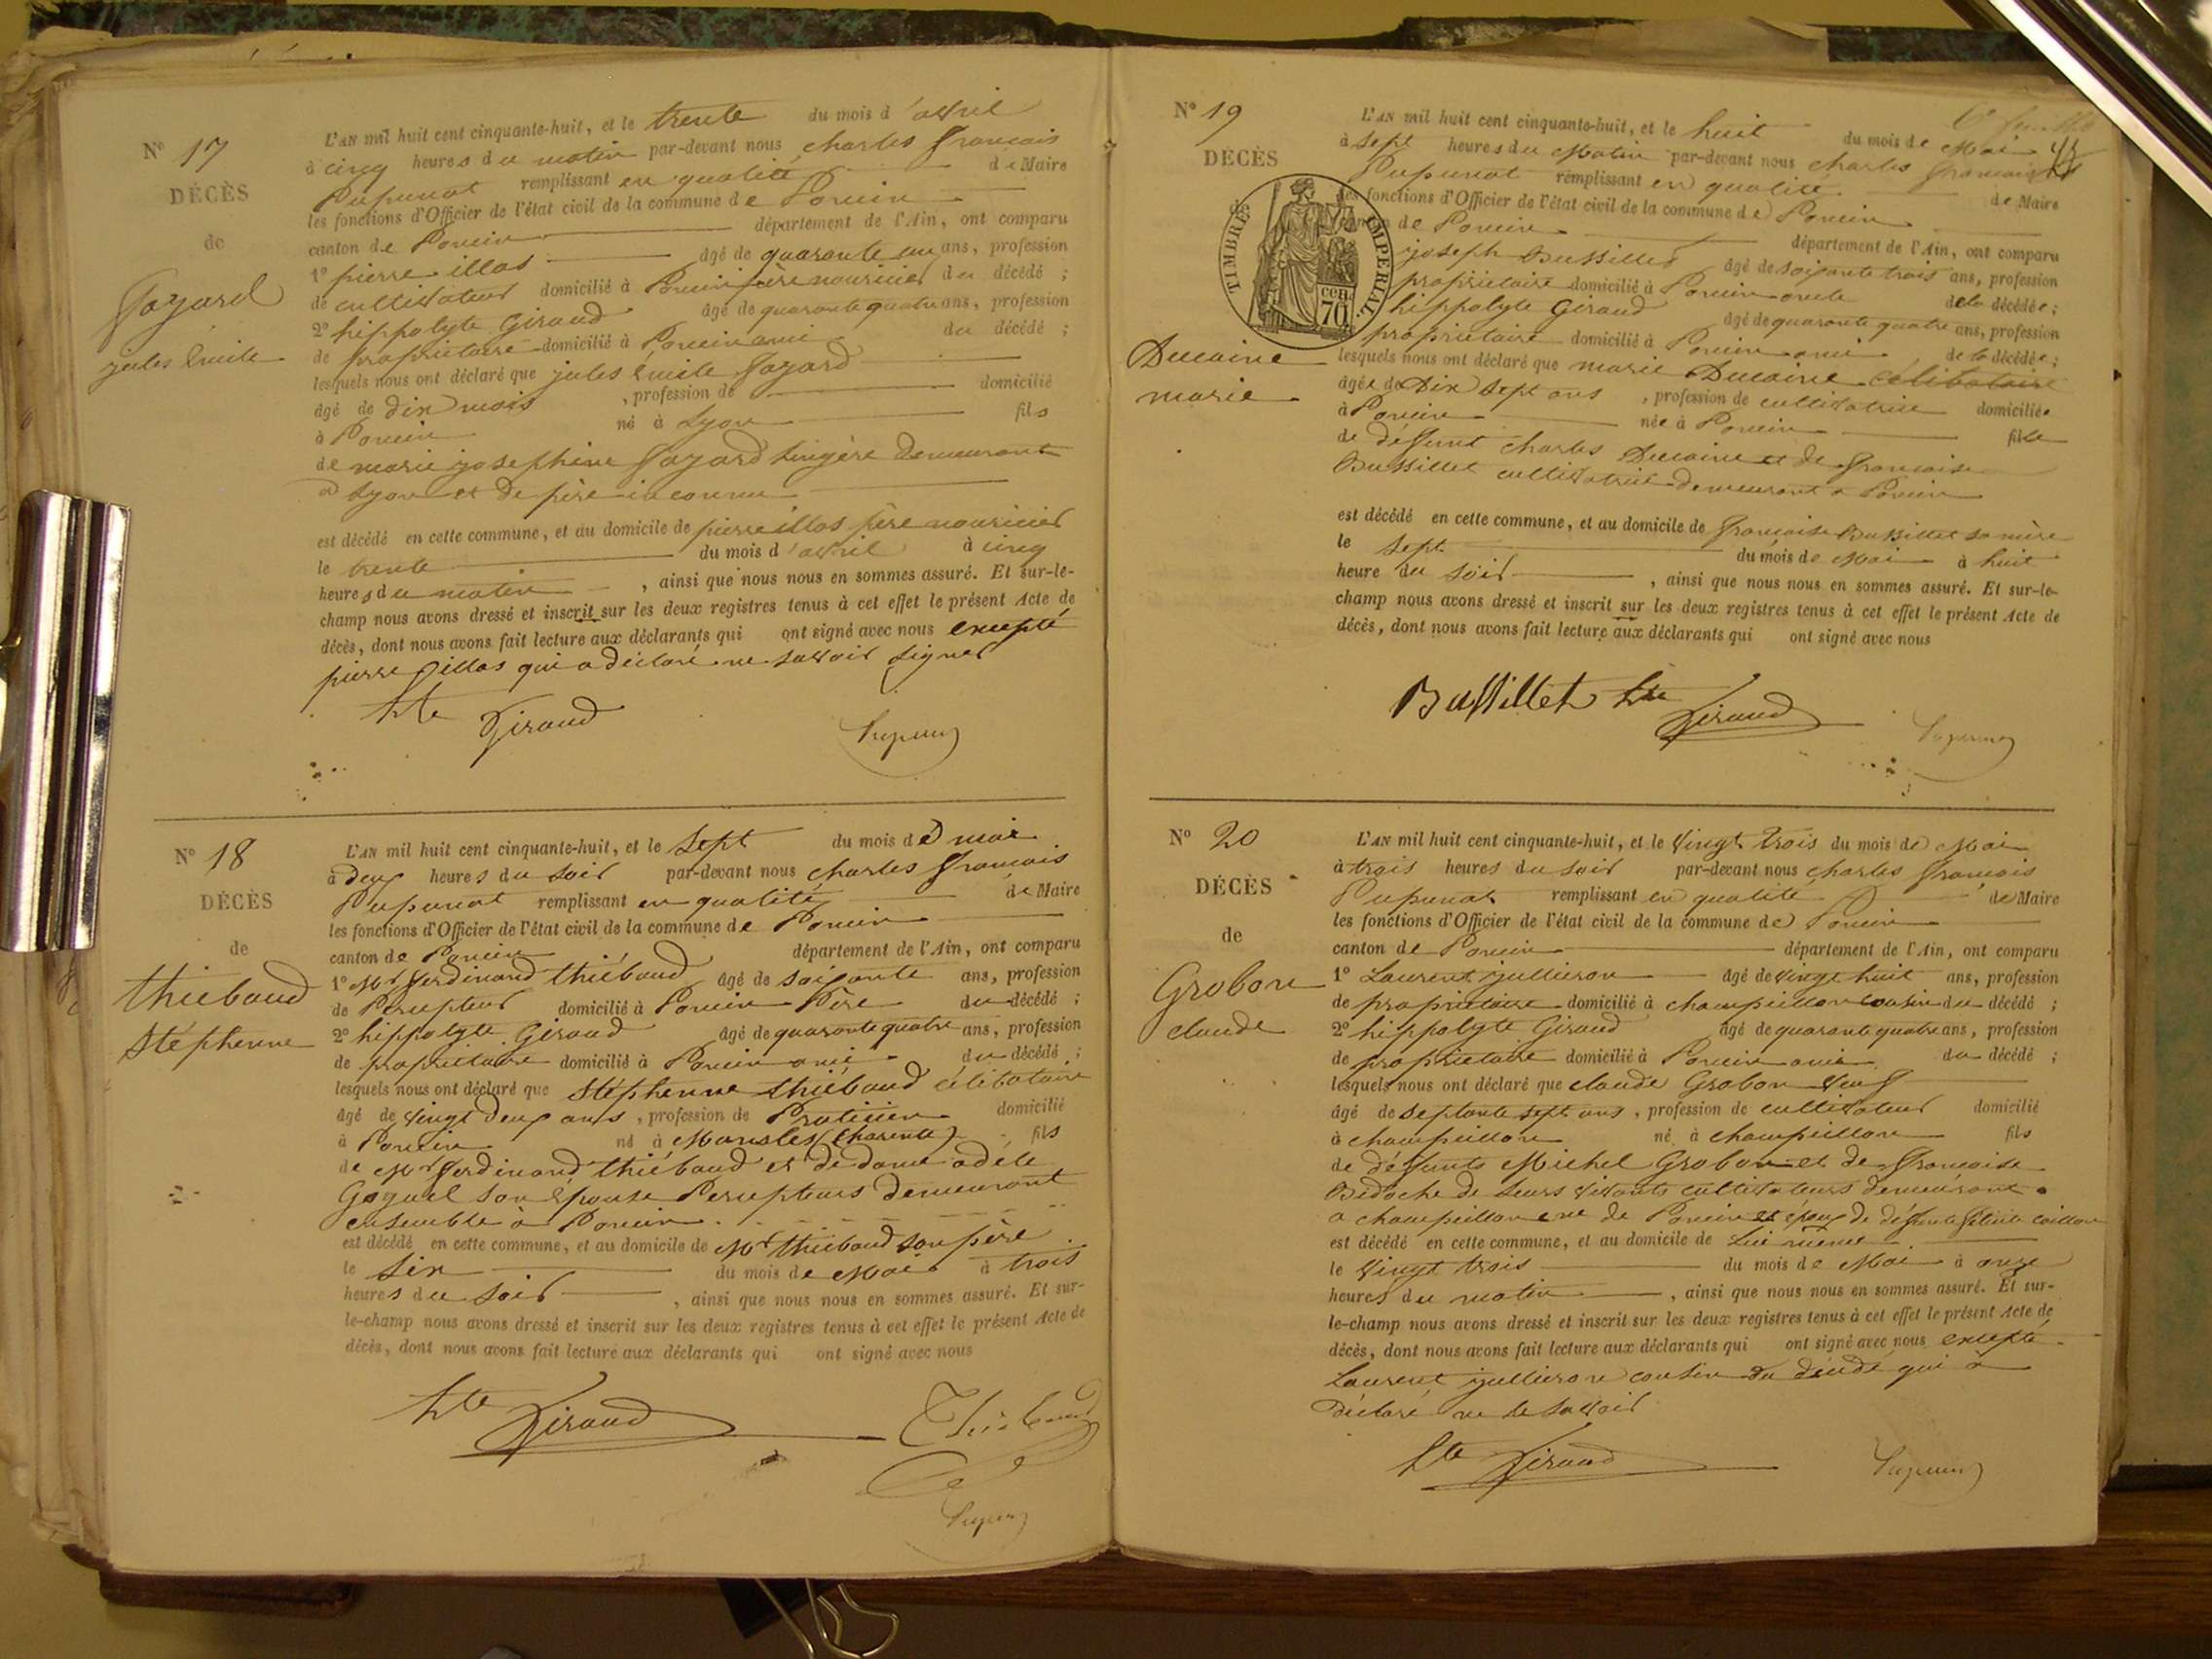 N° 17
DÉCÈS
de
Gozard
jules Émile
L'AN mil huit cent cinquante-huit, et le trente du mois d'avril
à cinq heures du matin par-devant nous charles françois
Pupunat remplissant en qualité de Maire
les fonctions d'Officier de l'état civil de la commune de Poncin
canton de Poncin département de l'Ain, ont comparu
1° pierre illas âgé de quarante un ans, profession
de cultivateur domicilié à Poncin père nouricier du décédé ;
2° hippolyte Giraud âgé de quarante quatre ans, profession
de propriétaire domicilié à Poncin ami du décédé ;
lesquels nous ont déclaré que jules Émile Gozard
âgé de dix mois , profession de domicilié
à Poncin né à Lyon fils
de marie josephine Gozard lingère demeurant
à Lyon et de père inconnu
est décédé en cette commune, et au domicile de pierre illas père nouricier
le trente du mois d'avril à cinq
heures du matin , ainsi que nous nous en sommes assuré. Et sur-le-
champ nous avons dressé et inscrit sur les deux registres tenus à cet effet le présent Acte de
décès, dont nous avons fait lecture aux déclarants qui ont signé avec nous excepté
pierre illas qui a déclaré ne savoir signer
hte Giraud Pupunat
N° 18
DÉCÈS
de
thiébaud
Stéphenne
L'AN mil huit cent cinquante-huit, et le Sept du mois de mai
à deux heures du soir par-devant nous charles françois
Pupunat remplissant en qualité de Maire
les fonctions d'Officier de l'état civil de la commune de Poncin
canton de Poncin département de l'Ain, ont comparu
1° Mr ferdinand thiébaud âgé de soixante ans, profession
de Percepteur domicilié à Poncin Père du décédé ;
2° hippolyte Giraud âgé de quarante quatre ans, profession
de propriétaire domicilié à Poncin ami du décédé ;
lesquels nous ont déclaré que Stéphenne thiébaud célibataire
âgé de vingt deux ans , profession de Praticien domicilié
à Poncin né à Mansles (Charente) fils
de Mr ferdinand thiébaud et de dame adèle
Goguel son épouse Percepteurs demeurant
ensemble à Poncin
est décédé en cette commune, et au domicile de Mr thiébaud son père
le Six du mois de Mai à trois
heures du soir , ainsi que nous nous en sommes assuré. Et sur-
le-champ nous avons dressé et inscrit sur les deux registres tenus à cet effet le présent Acte de
décès, dont nous avons fait lecture aux déclarants qui ont signé avec nous
hte Giraud Thiébaud
Pupunat
N° 19
DÉCÈS
de
TIMBRE IMPÉRIAL.
cen. 70
Ducaine
marie
L'AN mil huit cent cinquante-huit, et le huit du mois de Mai
à Sept heures du Matin par-devant nous charles françois
Pupunat remplissant en qualité de Maire
les fonctions d'Officier de l'état civil de la commune de Poncin
canton de Poncin département de l'Ain, ont comparu
joseph Bussillet âgé de soixante trois ans, profession
propriétaire domicilié à Poncin oncle de la décédée ;
hippolyte Giraud âgé de quarante quatre ans, profession
propriétaire domicilié à Poncin ami de la décédée ;
lesquels nous ont déclaré que marie Ducaine célibataire
âgée de Dix Sept ans , profession de cultivatrice domiciliée
à Poncin née à Poncin fille
de déffunt charles Ducaine et de françoise
Bussillet cultivatrice demeurant à Poncin
est décédé en cette commune, et au domicile de françoise Bussillet sa mère
le Sept du mois de Mai à huit
heure du soir , ainsi que nous nous en sommes assuré. Et sur-le-
champ nous avons dressé et inscrit sur les deux registres tenus à cet effet le présent Acte de
décès, dont nous avons fait lecture aux déclarants qui ont signé avec nous
Bussillet hte Giraud Pupunat
N° 20
DÉCÈS
de
Grobon
claude
L'AN mil huit cent cinquante-huit, et le vingt trois du mois de Mai
à trois heures du soir par-devant nous charles françois
Pupunat remplissant en qualité de Maire
les fonctions d'Officier de l'état civil de la commune de Poncin
canton de Poncin département de l'Ain, ont comparu
1° Laurent jullieron âgé de vingt huit ans, profession
de propriétaire domicilié à champeillon cousin du décédé ;
2° hippolyte Giraud âgé de quarante quatre ans, profession
de propriétaire domicilié à Poncin ami du décédé ;
lesquels nous ont déclaré que claude Grobon veuf
âgé de septante sept ans , profession de cultivateur domicilié
à champeillon né à champeillon fils
de déffunts Michel Grobon et de françoise
Bidoche de leurs vivants cultivateurs demeurant
à champeillon de Poncin et époux de déffunte
est décédé en cette commune, et au domicile de Lui même
le vingt trois du mois de Mai à onze
heures du matin , ainsi que nous nous en sommes assuré. Et sur-
le-champ nous avons dressé et inscrit sur les deux registres tenus à cet effet le présent Acte de
décès, dont nous avons fait lecture aux déclarants qui ont signé avec nous excepté
Laurent jullieron cousin du décédé qui a
déclaré ne le savoir
hte Giraud Pupunat